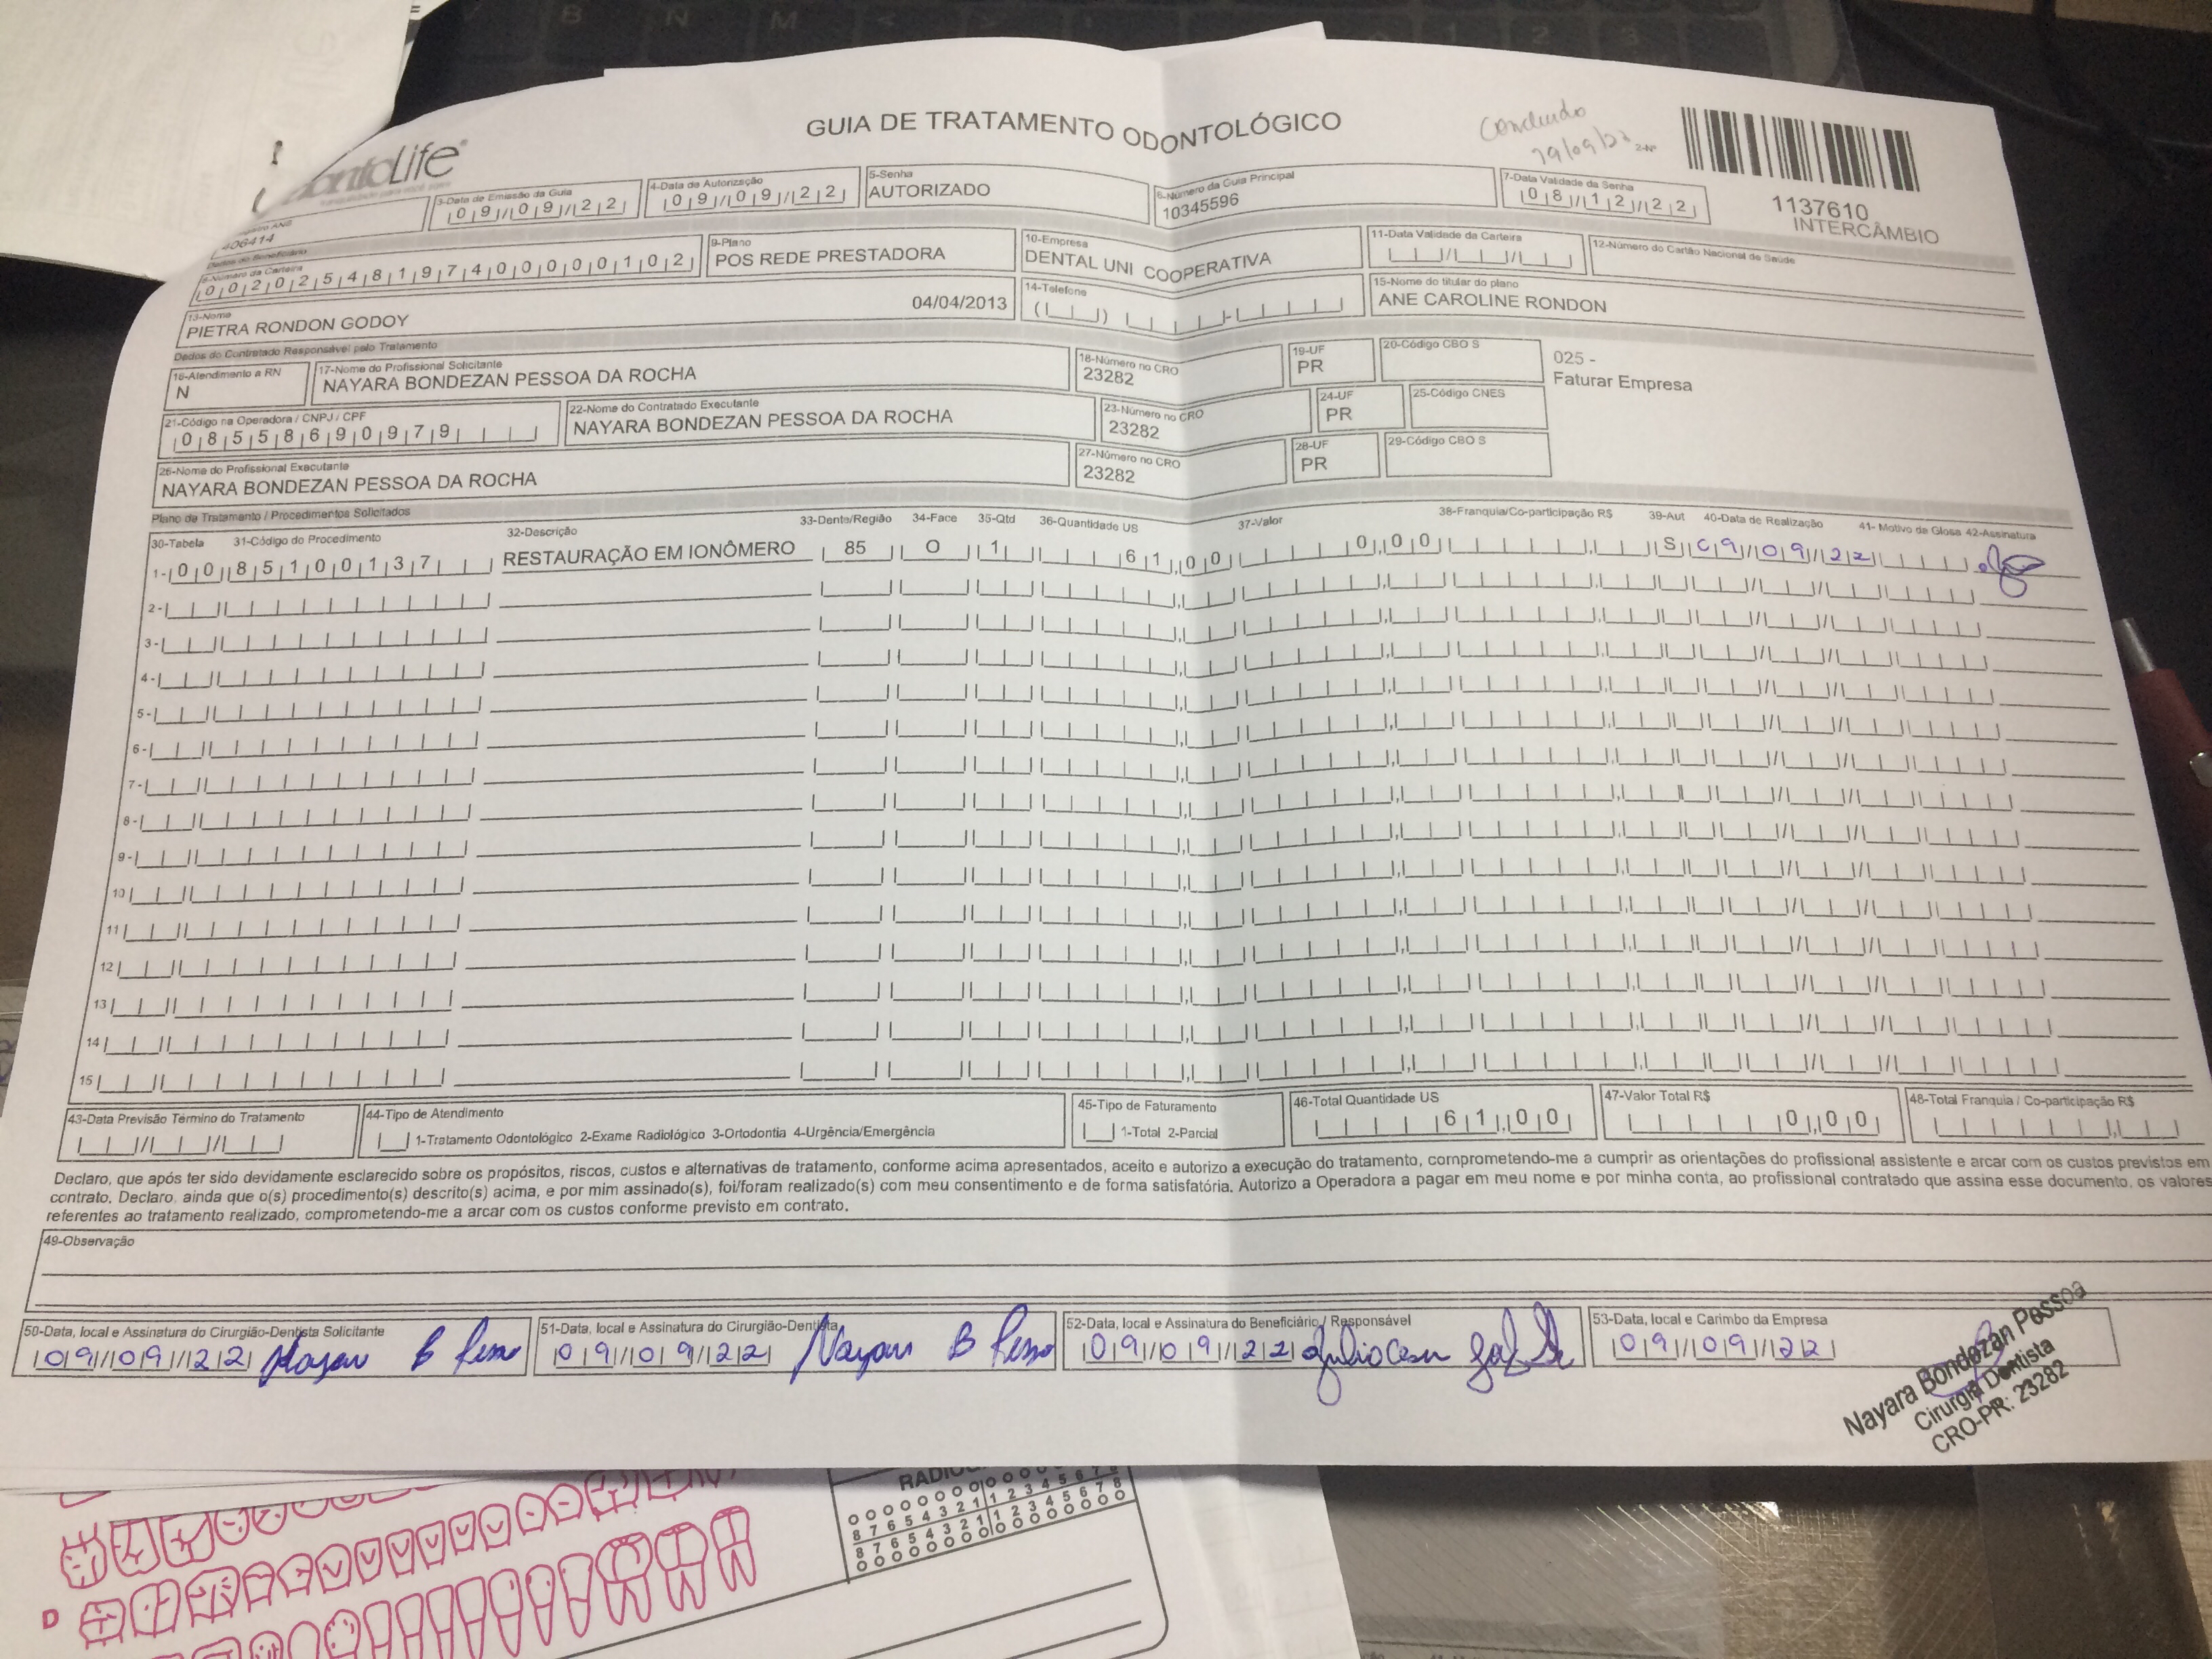 GUIA DE TRATAMENTO ODONTOLÓGICO
Concluido
2-Nº
1137610
INTERCÂMBIO
406414
3-Data de Emissão da Guia
09/09/22
4-Data de Autorização
09/09/22
5-Senha
AUTORIZADO
6-Número da Guia Principal
10345596
7-Data Validade da Senha
08/12/22
Dados do Beneficiário
8-Número da Carteira
00202548197400000102
9-Plano
POS REDE PRESTADORA
10-Empresa
DENTAL UNI COOPERATIVA
11-Data Validade da Carteira
12-Número do Cartão Nacional de Saúde
13-Nome
PIETRA RONDON GODOY 04/04/2013
14-Telefone
15-Nome do titular do plano
ANE CAROLINE RONDON
Dados do Contratado Responsável pelo Tratamento
16-Atendimento a RN
N
17-Nome do Profissional Solicitante
NAYARA BONDEZAN PESSOA DA ROCHA
18-Número no CRO
23282
19-UF
PR
20-Código CBO S
025 -
Faturar Empresa
21-Código na Operadora / CNPJ / CPF
08558690979
22-Nome do Contratado Executante
NAYARA BONDEZAN PESSOA DA ROCHA
23-Número no CRO
23282
24-UF
PR
25-Código CNES
26-Nome do Profissional Executante
NAYARA BONDEZAN PESSOA DA ROCHA
27-Número no CRO
23282
28-UF
PR
29-Código CBO S
Plano de Tratamento / Procedimentos Solicitados
30-Tabela 31-Código do Procedimento 32-Descrição 33-Dente/Região 34-Face 35-Qtd 36-Quantidade US 37-Valor 38-Franquia/Co-participação R$ 39-Aut 40-Data de Realização 41- Motivo da Glosa 42-Assinatura
1- 00 85100137 RESTAURAÇÃO EM IONÔMERO 85 O 1 61,00 0,00 S 09/09/22
2-
3-
4-
5-
6-
7-
8-
9-
10
11
12
13
14
15
43-Data Previsão Término do Tratamento
44-Tipo de Atendimento
1-Tratamento Odontológico 2-Exame Radiológico 3-Ortodontia 4-Urgência/Emergência
45-Tipo de Faturamento
1-Total 2-Parcial
46-Total Quantidade US
61,00
47-Valor Total R$
0,00
48-Total Franquia / Co-participação R$
Declaro, que após ter sido devidamente esclarecido sobre os propósitos, riscos, custos e alternativas de tratamento, conforme acima apresentados, aceito e autorizo a execução do tratamento, comprometendo-me a cumprir as orientações do profissional assistente e arcar com os custos previstos em
contrato. Declaro, ainda que o(s) procedimento(s) descrito(s) acima, e por mim assinado(s), foi/foram realizado(s) com meu consentimento e de forma satisfatória. Autorizo a Operadora a pagar em meu nome e por minha conta, ao profissional contratado que assina esse documento, os valores
referentes ao tratamento realizado, comprometendo-me a arcar com os custos conforme previsto em contrato.
49-Observação
50-Data, local e Assinatura do Cirurgião-Dentista Solicitante
09/09/22
51-Data, local e Assinatura do Cirurgião-Dentista
09/09/22
52-Data, local e Assinatura do Beneficiário / Responsável
09/09/22
53-Data, local e Carimbo da Empresa
09/09/22
Nayara Bondezan Pessoa
Cirurgiã Dentista
CRO-PR: 23282
8 7 6 5 4 3 2 1 1 2 3 4 5 6 7 8
8 7 6 5 4 3 2 1 1 2 3 4 5 6 7 8
D